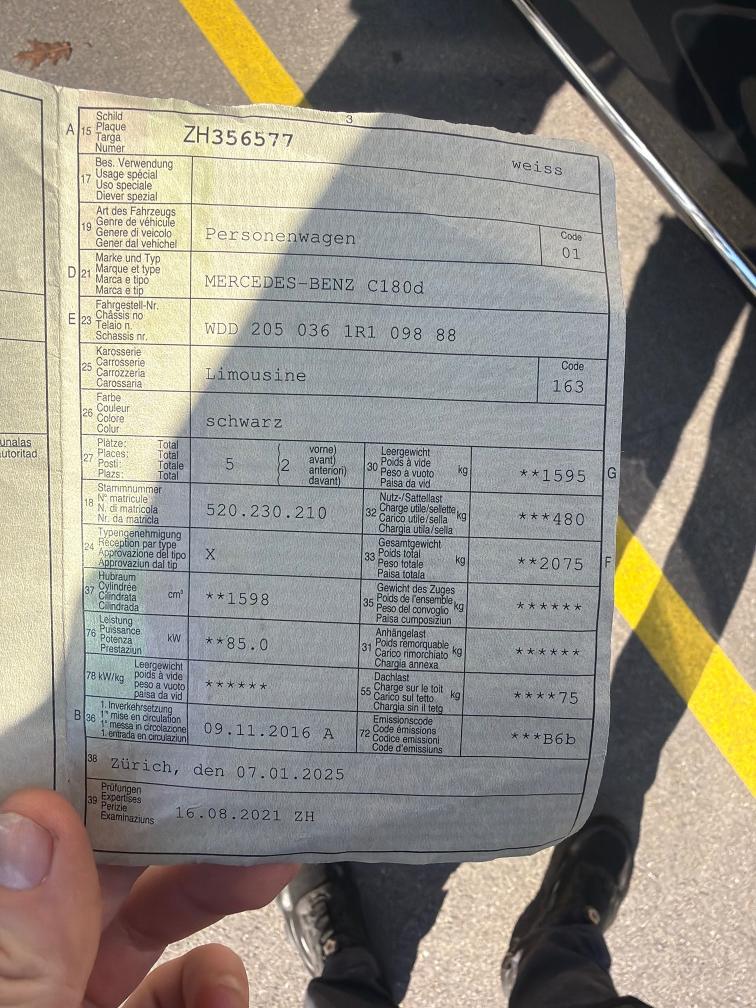 3
A 15 Schild
Plaque
Targa
Numer
ZH356577
weiss
17 Bes. Verwendung
Usage spécial
Uso speciale
Diever spezial
19 Art des Fahrzeugs
Genre de véhicule
Genere di veicolo
Gener dal vehichel
Personenwagen
Code
01
D 21 Marke und Typ
Marque et type
Marca e tipo
Marca e tip
MERCEDES-BENZ C180d
E 23 Fahrgestell-Nr.
Châssis no
Telaio n.
Schassis nr.
WDD 205 036 1R1 098 88
25 Karosserie
Carrosserie
Carrozzeria
Carossaria
Limousine
Code
163
26 Farbe
Couleur
Colore
Colur
schwarz
27 Plätze: Total
Places: Total
Posti: Totale
Plazs: Total
5 (2 vorne)
avant)
anteriori)
davant)
30 Leergewicht
Poids à vide
Peso a vuoto
Paisa da vid
kg
**1595
G
18 Stammnummer
N° matricule
N. di matricola
Nr. da matricla
520.230.210
32 Nutz-/Sattellast
Charge utile/sellette
Carico utile/sella
Chargia utila/sella
kg
***480
24 Typengenehmigung
Réception par type
Approvazione del tipo
Approvaziun dal tip
X
33 Gesamtgewicht
Poids total
Peso totale
Paisa totala
kg
**2075
F
37 Hubraum
Cylindrée
Cilindrata
Cilindrada
cm³
**1598
35 Gewicht des Zuges
Poids de l'ensemble
Peso del convoglio
Paisa cumposiziun
kg
******
76 Leistung
Puissance
Potenza
Prestaziun
kW
**85.0
31 Anhängelast
Poids remorquable
Carico rimorchiato
Chargia annexa
kg
******
78 kW/kg Leergewicht
poids à vide
peso a vuoto
paisa da vid
******
55 Dachlast
Charge sur le toit
Carico sul tetto
Chargia sin il tetg
kg
****75
B 36 1. Inverkehrsetzung
1re mise en circulation
1a messa in circolazione
1. entrada en circulaziun
09.11.2016 A
72 Emissionscode
Code émissions
Codice emissioni
Code d'emissiuns
***B6b
38 Zürich, den 07.01.2025
39 Prüfungen
Expertises
Perizie
Examinaziuns
16.08.2021 ZH